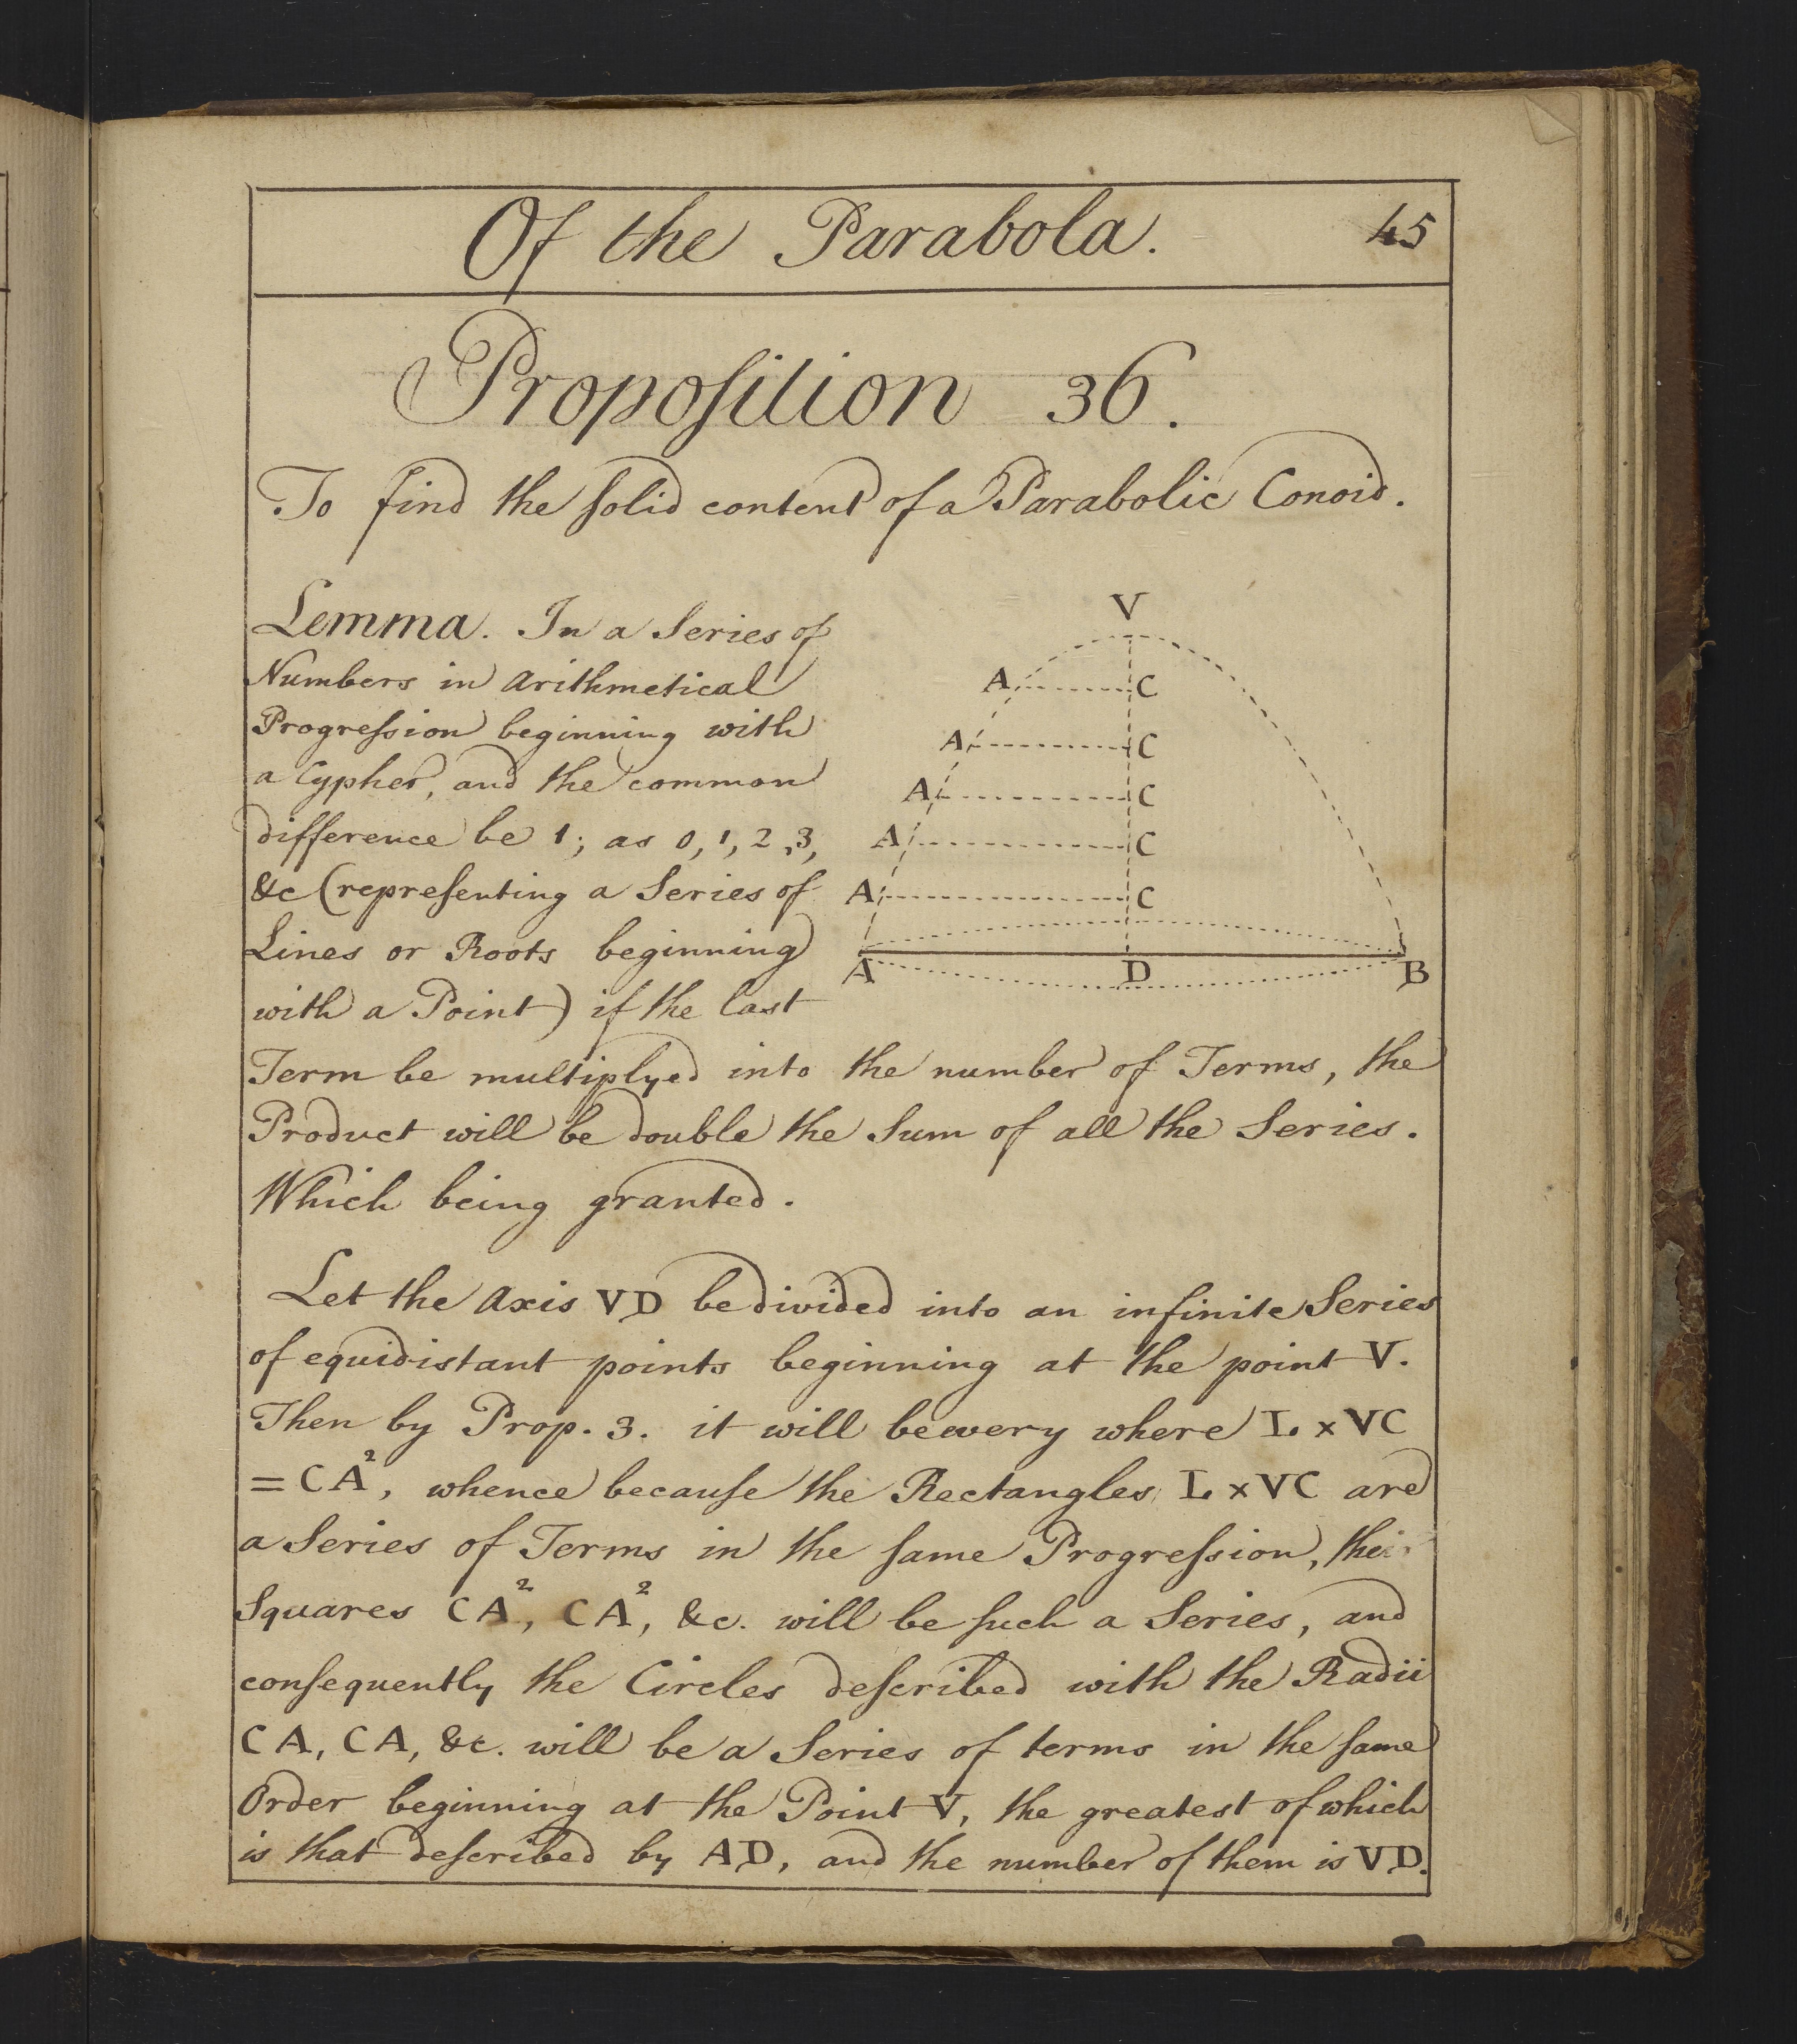 Of the Parabola. 45
Proposition 36.
To find the solid content of a Parabolic Conoid.
Lemma. In a Series of
Numbers in arithmetical
Progression beginning with
a Cypher, and the common
difference be 1; as 0, 1, 2, 3,
&c (representing a Series of
Lines or Roots beginning
with a Point) if the last
V
A C
A C
A C
A C
A C
A D B
Term be multiplyed into the number of Terms, the
Product will be double the Sum of all the Series.
Which being granted.
Let the Axis VD be divided into an infinite Series
of equidistant points beginning at the point V.
Then by Prop. 3. it will be every where L x VC
= CA², whence because the Rectangles L x VC are
a Series of Terms in the same Progression, their
Squares CA², CA², &c. will be such a Series, and
consequently the Circles described with the Radii
CA, CA, &c. will be a Series of terms in the same
Order beginning at the Point V, the greatest of which
is that described by AD, and the number of them is VD.